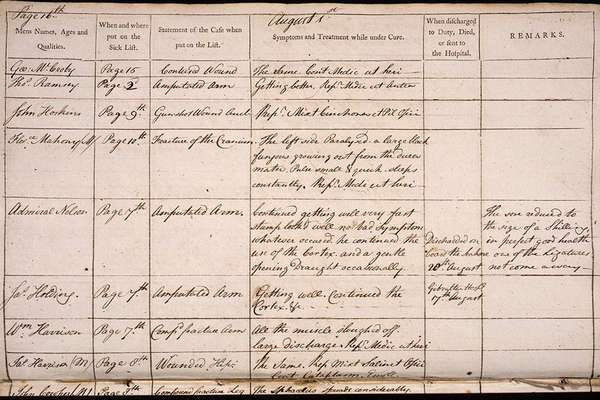 Page 16th
August 1st
Mens Names, Ages and Qualities.
When and where put on the Sick List.
Statement of the Case when put on the List.
Symptoms and Treatment while under Cure.
When discharged to Duty, Died, or sent to the Hospital.
REMARKS.
Geo: McCrosby Page 15 Contused Wound The same Cont Medic at heri
Thos. Ramsey Page 2d Amputated Arm Getting better. Rept. Medic at
John Hoskins Page 9th Gunshot Wound Rept. Mist Cinchonae et Pil Opii
Mahony Page 10th Fracture of the Cranium The left side Paralysed a large black
fungous growing out from the dura
mater, Pulse small & quick sleeps
constantly. Rept. Medic at heri
Admiral Nelson Page 7th Amputated Arm. Continued getting well very fast
Stump look'd well no bad Symptom
whatever occured he continued the
use of the Cortex and a gentle
opening Draught occasionally.
Discharged on
board the
20th August
The sore reduced to
the size of a Shilling
in perfect good health
one of the Ligatures
not come away
Jas. Holding Page 7th Amputated Arm Getting well. Continued the
Cortex &c
Gibralter Hospl
17th August
Wm Harrison Page 7th Compd. fracture Arm All the muscle sloughed off
large discharge. Rept. Medic at heri
Jas. Harrison (M) Page 8th Wounded Hips The Same. Rept Mist Salinet Opii
Cont Cataplasm
John Page 8th Compound fracture Leg The considerably